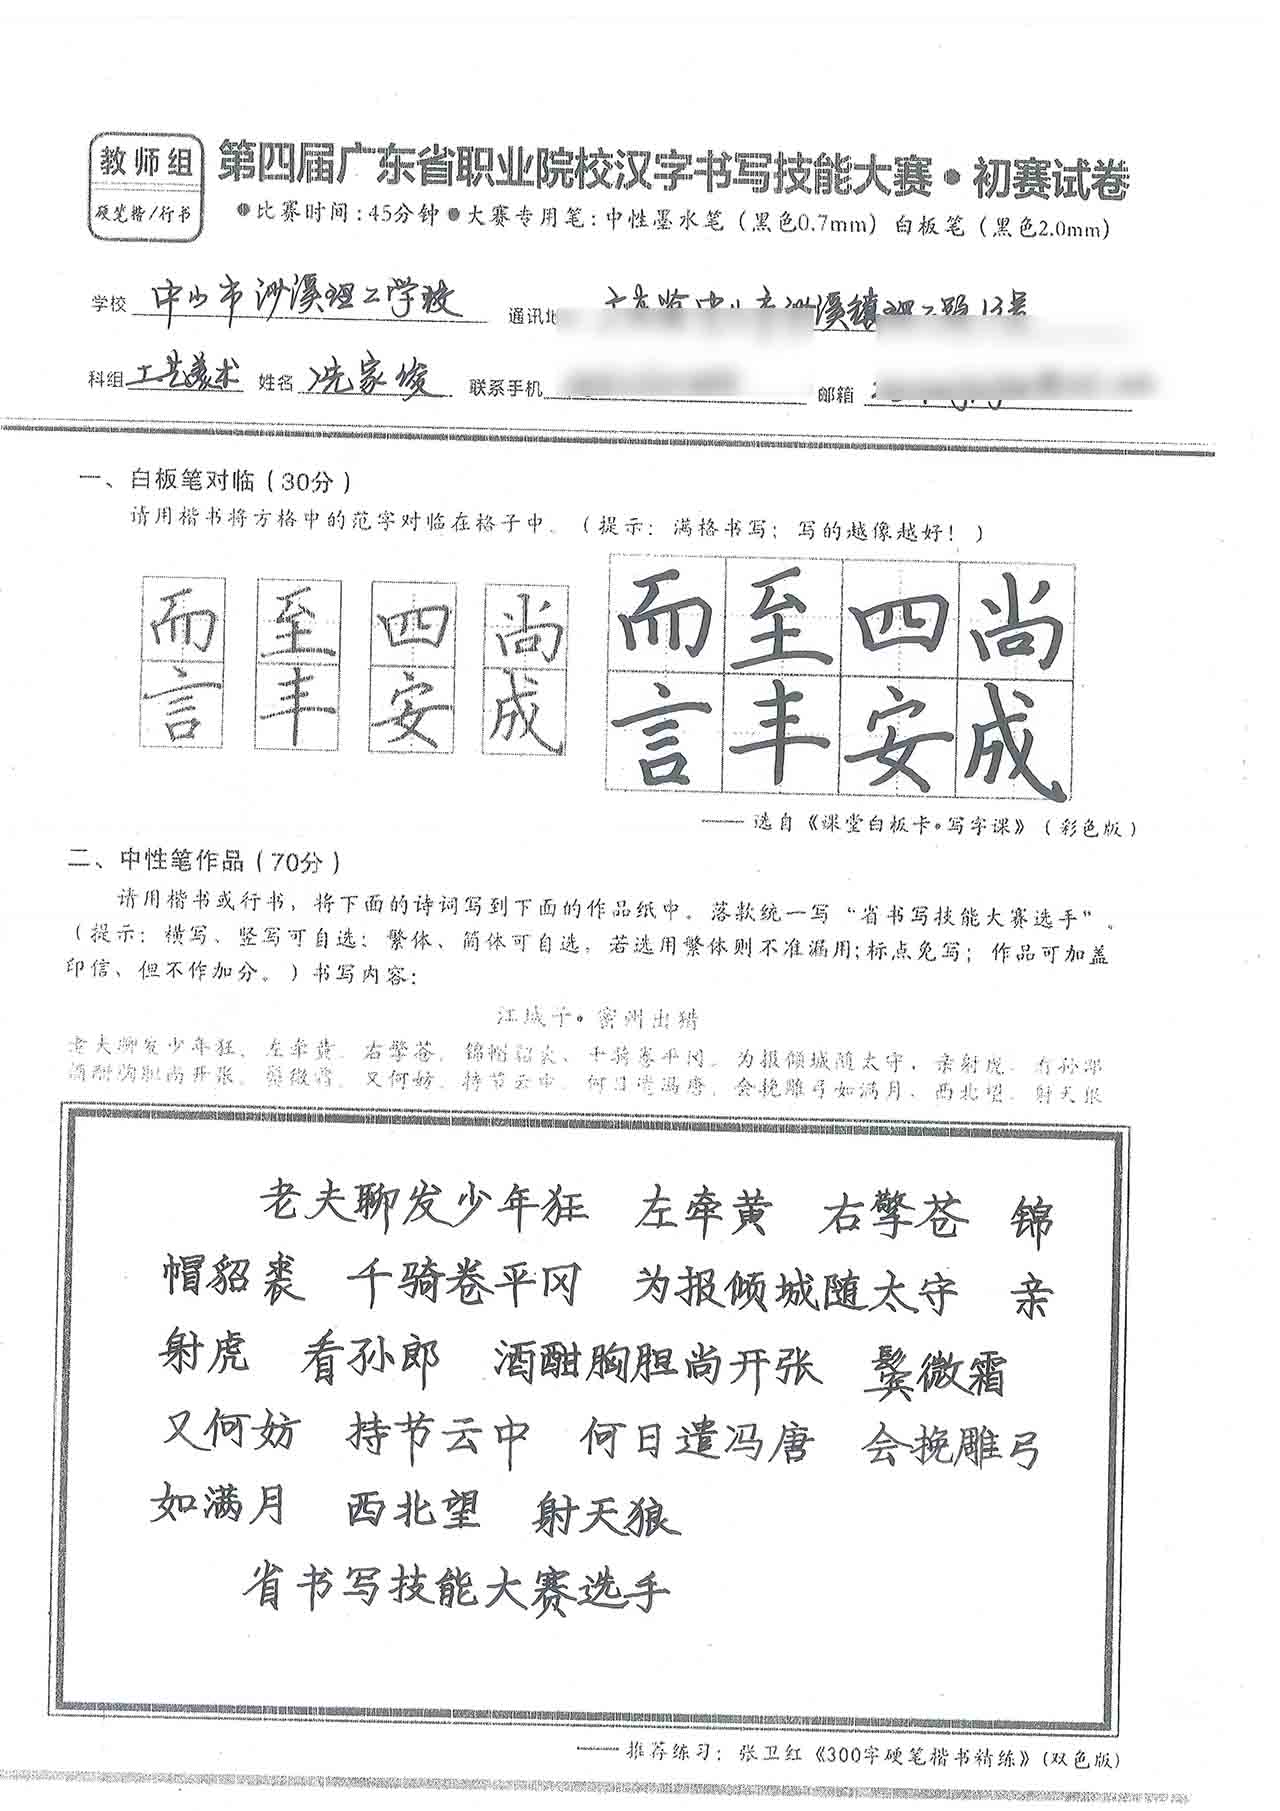 教师组
硬笔楷/行书
第四届广东省职业院校汉字书写技能大赛·初赛试卷
●比赛时间:45分钟●大赛专用笔:中性墨水笔(黑色0.7mm)白板笔(黑色2.0mm)
学校 中山市沙溪理工学校 通讯地
科组 工艺美术 姓名 冼家俊 联系手机 邮箱
一、白板笔对临(30分)
请用楷书将方格中的范字对临在格子中。(提示:满格书写;写的越像越好!)
而 至 四 尚 而 至 四 尚
言 丰 安 成 言 丰 安 成
——选自《课堂白板卡·写字课》(彩色版)
二、中性笔作品(70分)
请用楷书或行书,将下面的诗词写到下面的作品纸中。落款统一写“省书写技能大赛选手”。
(提示:横写、竖写可自选;繁体、简体可自选,若选用繁体则不准漏用;标点免写;作品可加盖
印信、但不作加分。)书写内容:
江城子·密州出猎
老夫聊发少年狂,左牵黄,右擎苍,锦帽貂裘,千骑卷平冈。为报倾城随太守,亲射虎,看孙郎
酒酣胸胆尚开张,鬓微霜,又何妨,持节云中,何日遣冯唐,会挽雕弓如满月,西北望,射天狼
老夫聊发少年狂 左牵黄 右擎苍 锦
帽貂裘 千骑卷平冈 为报倾城随太守 亲
射虎 看孙郎 酒酣胸胆尚开张 鬓微霜
又何妨 持节云中 何日遣冯唐 会挽雕弓
如满月 西北望 射天狼
省书写技能大赛选手
——推荐练习:张卫红《300字硬笔楷书精练》(双色版)